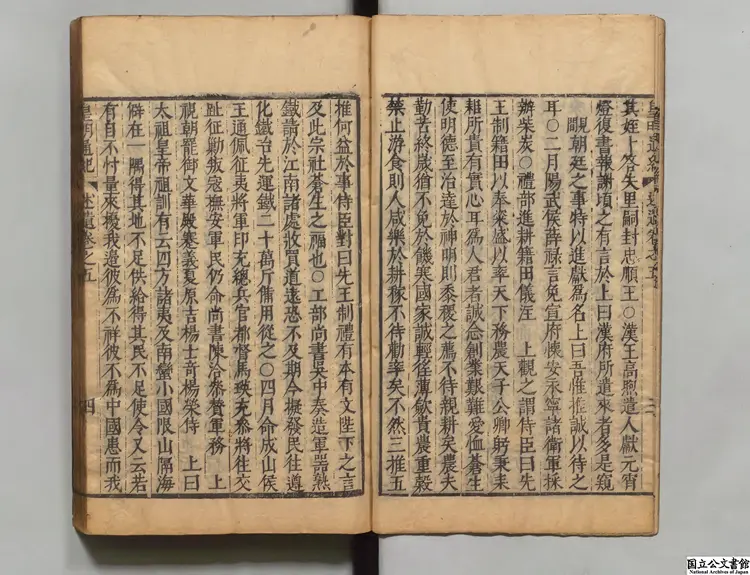 其姪卜答失里嗣封忠順王○漢王高煦遣人獻元宵
燈復書報謝頃之有言於上曰漢府所遣來者多是窺
覸朝廷之事特以進獻為名上曰吾惟推誠以待之
耳○二月陽武侯薛祿言免宣府懷安永寧諸衛軍採
辦柴炭○禮部進耕籍田儀注　上觀之謂侍臣曰先
王制籍田以奉粢盛以率天下務農天子公卿躬秉耒
耜所貴有實心耳為人君者誠念創業艱難愛恤蒼生
使明德至治達於神明則黍稷之薦不待親耕矣農夫
勤苦終歲猶不免於饑寒國家誠輕徭薄歛貴農重穀
禁止游食則人咸樂於耕稼不待勸率矣不然三推五
推何益於事侍臣對曰先王制禮有本有文陛下之言
及此宗社蒼生之福也○工部尚書吳中奏造軍器熟
鐵請於江南諸處收買道遠恐不及期今擬發民往遵
化鐵冶先運鐵二十萬斤備用從之○四月命成山侯
王通佩征夷將軍印充總兵官都督馬瑛充叅將往交
趾征勦叛寇撫安軍民仍命尚書陳洽叅贊軍務　上
視朝罷御文華殿蹇義夏原吉楊士奇楊榮侍　上曰
太祖皇帝祖訓有云四方諸夷及南蠻小國限山隔海
僻在一隅得其地不足供給得其民不足使令又云若
有自不忖量來擾我邊彼為不祥彼不為中國患而我
皇明通紀　述遺卷之五　四